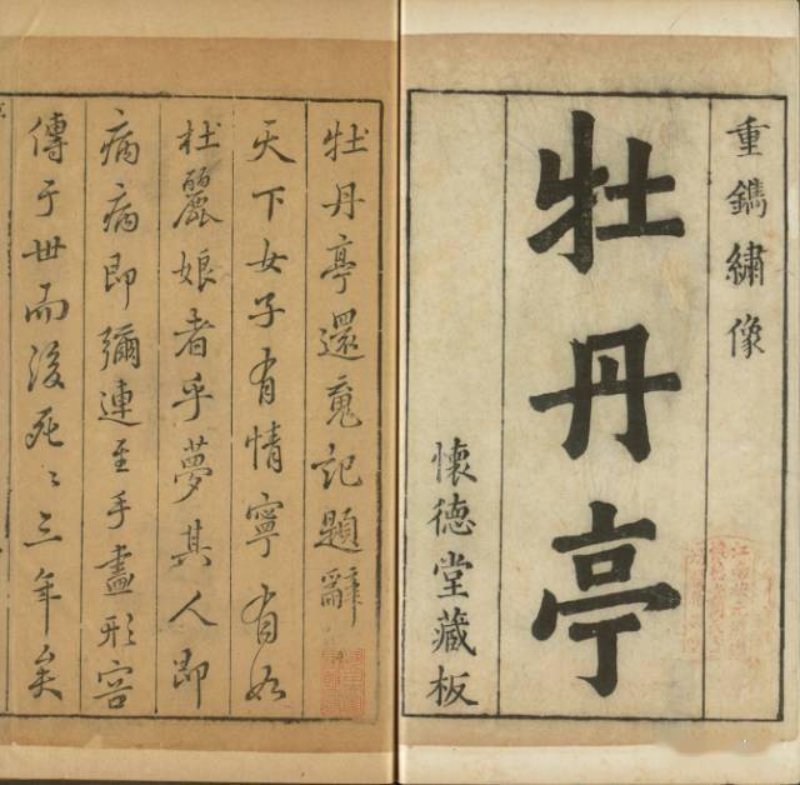 重鐫繡像
牡丹亭
懷德堂藏板
牡丹亭還魂記題辭
天下女子有情寧有如
杜麗娘者乎夢其人即
病病即彌連至手畫形容
傳于世而後死〻三年矣